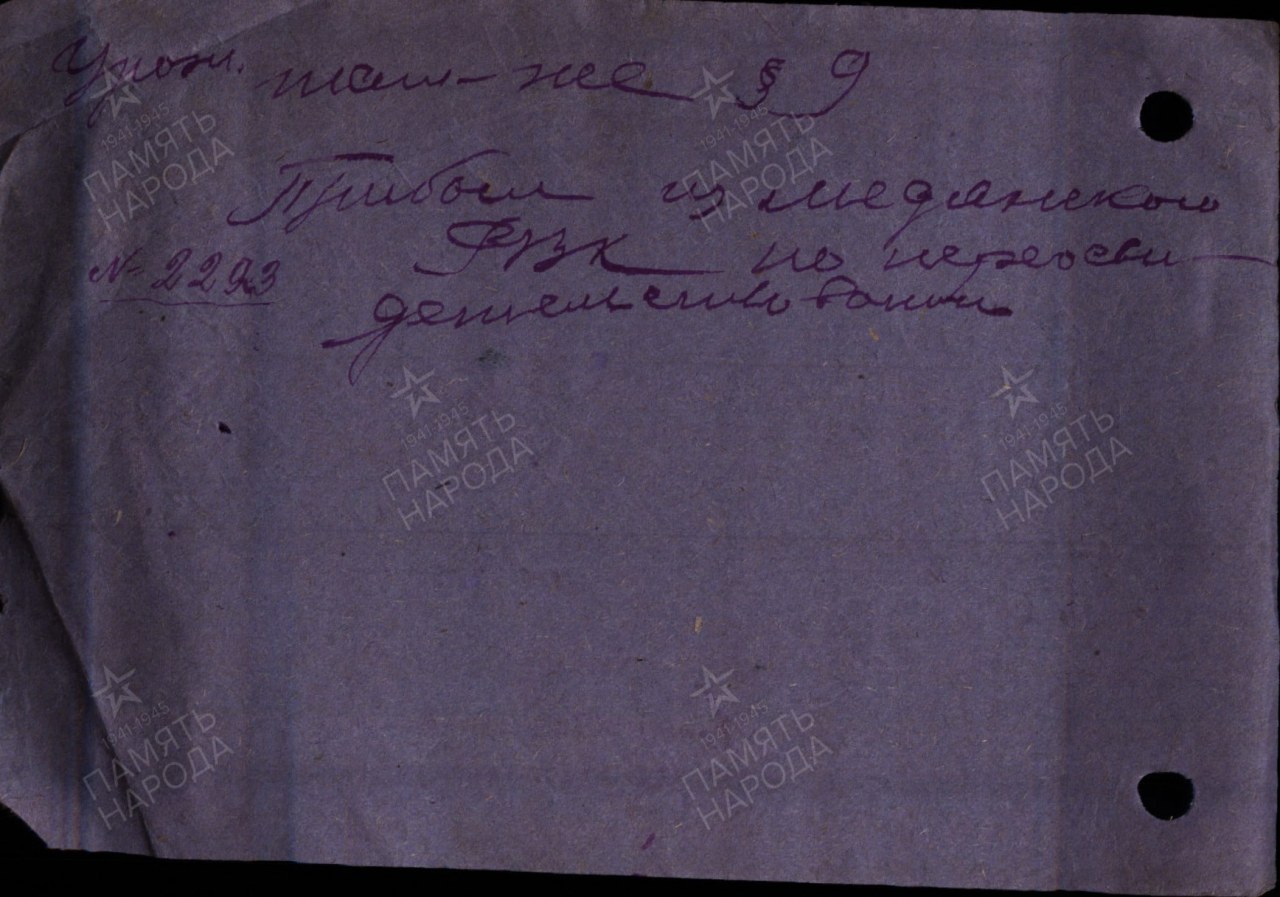 там-же § 9
Прибыл из Меданского
РВК по переосви-
№ 2293
детельствовании
1941-1945
ПАМЯТЬ
НАРОДА
1941-1945
ПАМЯТЬ
НАРОДА
1941-1945
ПАМЯТЬ
НАРОДА
1941-1945
ПАМЯТЬ
НАРОДА
1941-1945
ПАМЯТЬ
НАРОДА
1941-1945
ПАМЯТЬ
НАРОДА